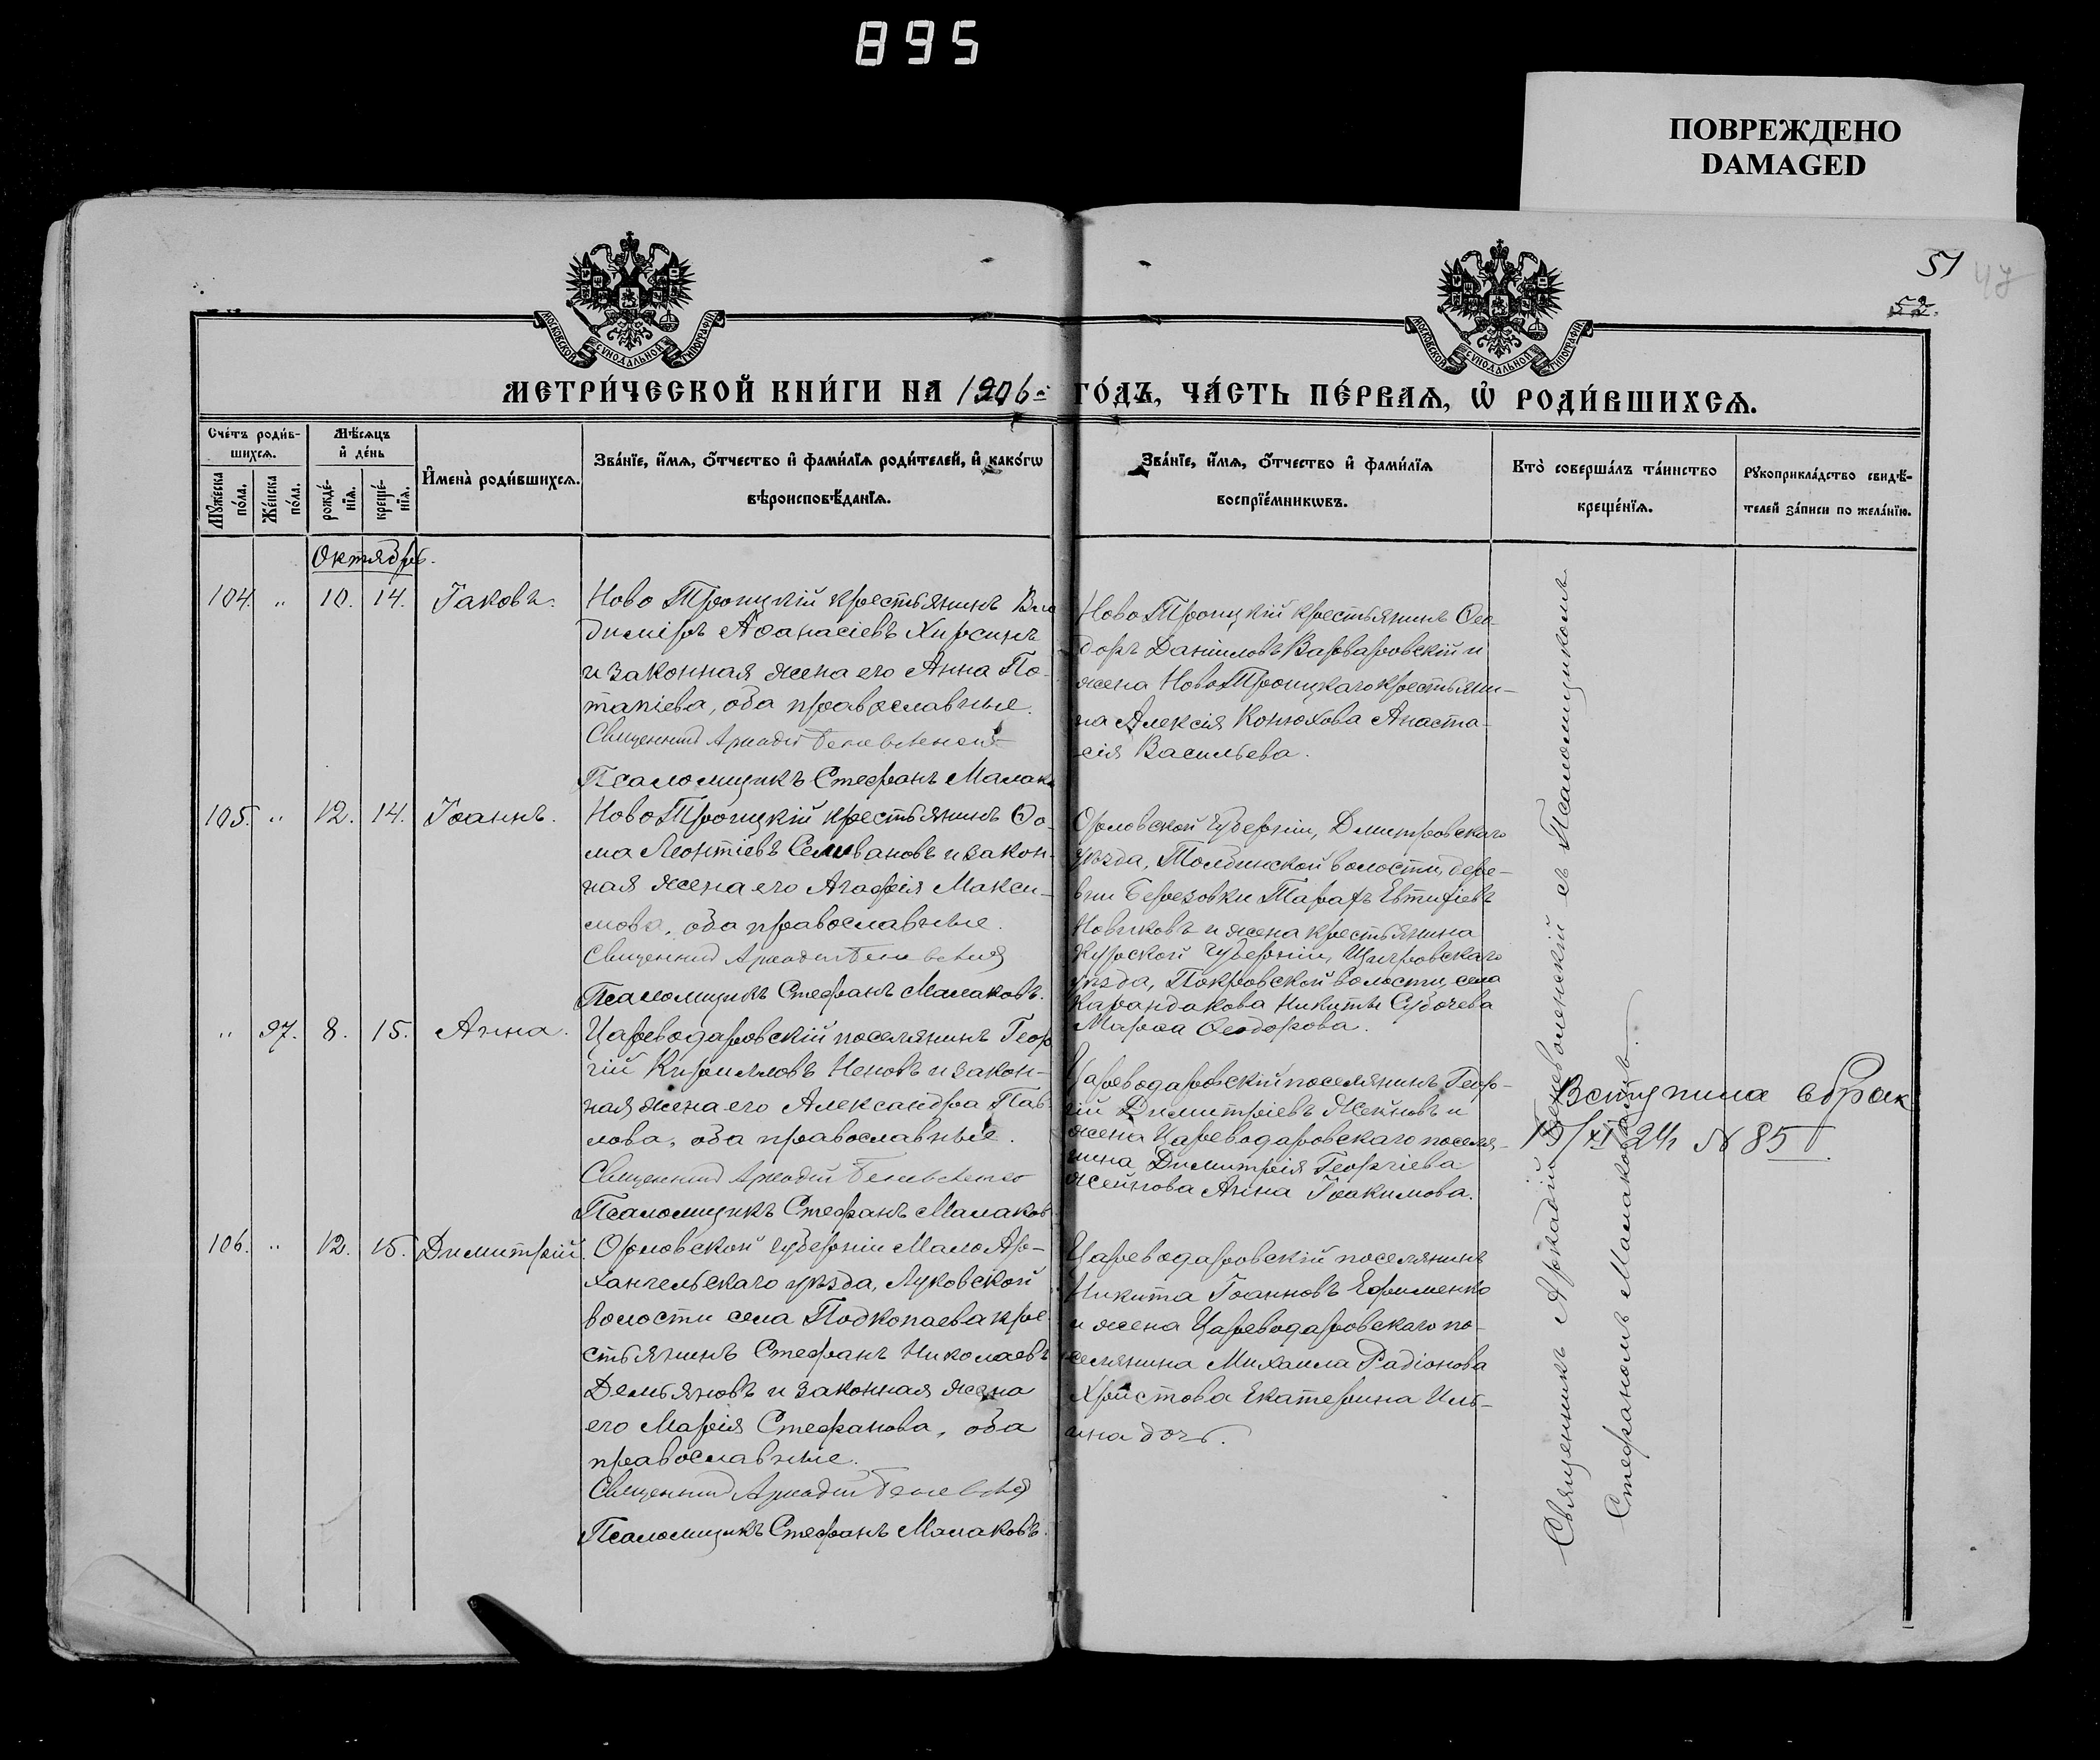 895
ПОВРЕЖДЕНО
DAMAGED
51
47
52.
МОСКОВСКОЙ СѴНОДАЛЬНОЙ ТИПОГРАФІИ
МОСКОВСКОЙ СѴНОДАЛЬНОЙ ТИПОГРАФІИ
МЕТРИ́ЧЕСКОЙ КНИ́ГИ НА 1906 = ГО́ДЪ, ЧА́СТЬ ПЕ́РВАѦ, Ѡ҆ РОДИ́ВШИХСѦ.
Сче́тъ роди́в-
шихсѧ.
Мꙋ́жеска по́ла.
Же́нска по́ла.
Мѣ́сѧцъ
и҆ де́нь
рожде́-
нїѧ.
креще́-
нїѧ.
И҆мена̀ роди́вшихсѧ.
Зва́нїе, и҆́мѧ, ѻ҆́тчество и҆ фами́лїѧ роди́телей, и҆ како́гѡ
вѣроисповѣ́данїѧ.
Зва́нїе, и҆́мѧ, ѻ҆́тчество и҆ фами́лїѧ
воспрїе́мникѡвъ.
Кто̀ соверша́лъ та́инство
креще́нїѧ.
Рꙋкоприкла́дство свидѣ́-
телей за́писи по жела́нїю.
Октябрь.
104. " 10. 14. Іаковъ.
Ново Троицкій крестьянинъ Вла
димiръ Аѳанасіевъ Хирсинъ
и законная жена его Анна По-
тапіева, оба православные.
Священникъ Аркадій
Псаломщикъ Стефанъ Малако
Ново Троицкій крестьянинъ Ѳео-
доръ Даніиловъ Варваровскій и
жена Ново Троицкаго крестьяни-
на Алексія Конюхова Анаста-
сія Васильева.
105. " 12. 14. Іоаннъ.
Ново Троицкій крестьянинъ Ѳо-
ма Леонтіевъ Селивановъ и закон-
ная жена его Агафія Макси-
мова, оба православные.
Священникъ Аркадій
Псаломщикъ Стефанъ Малаковъ.
Орловской губерніи, Дмитровскаго
уѣзда, Толбинской волости, дере-
вни Березовки Тарахъ Евтихіевъ
Новиковъ и жена крестьянина
Курской губерніи, Щигровскаго
уѣзда, Покровской волости, села
Карандакова Никиты Субочева
Марѳа Ѳеодорова.
" 97. 8. 15. Анна.
Цареводаровскій поселянинъ Геор
гій Кирилловъ Неновъ и закон-
ная жена его Александра Пав-
лова, оба православные.
Священникъ Аркадій
Псаломщикъ Стефанъ Малаков
Цареводаровскій поселянинъ Геор-
гій Димитріевъ Жейновъ и
жена Цареводаровскаго поселя-
нина Димитрія Георгіева
Жейнова Анна Іоакимова.
Вступила в брак
15/XI 24 г № 85
106. " 12. 15. Димитрій.
Орловской губерніи Мало Ар-
хангельскаго уѣзда, Луковской
волости села Подкопаева кре-
стьянинъ Стефанъ Николаевъ
Демьяновъ и законная жена
его Марія Стефанова, оба
православные.
Священникъ Аркадій
Псаломщикъ Стефанъ Малаковъ.
Цареводаровскій поселянинъ
Никита Іоанновъ Ефименко
и жена Цареводаровскаго по-
селянина Михаила Радіонова
Христова Екатерина Иль-
ина дочь.
Священникъ Аркадій съ Псаломщикомъ
Стефаномъ Малаковымъ.